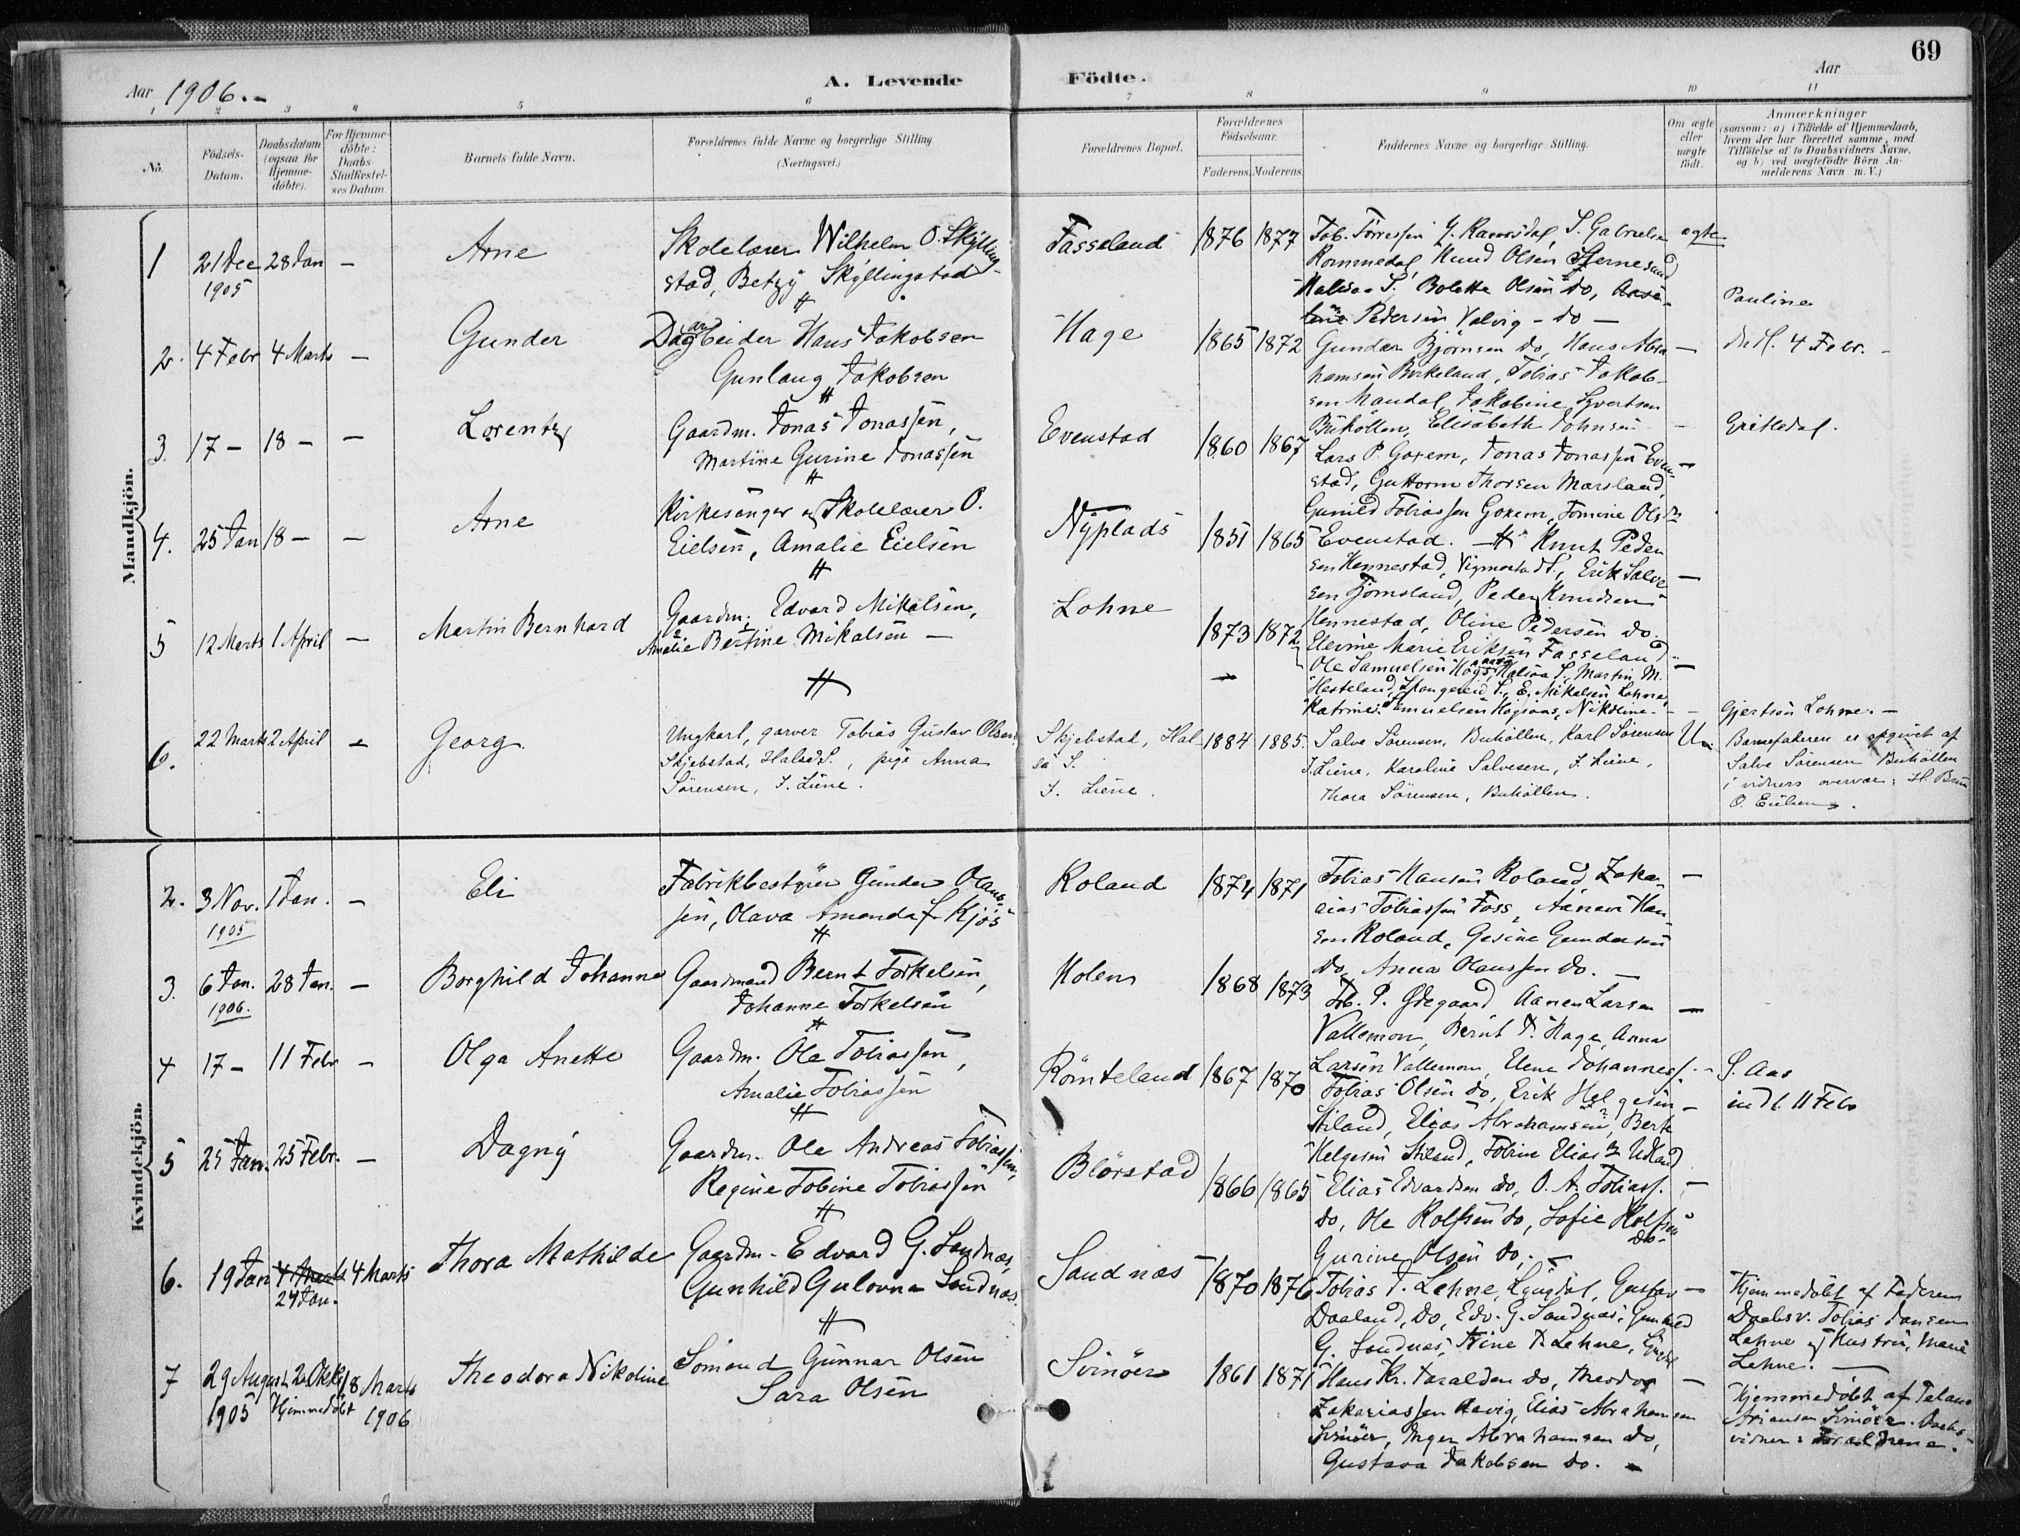 69
Aar 1906.-
A. Levende Födte.
Aar
1 2 3 4 5 6 7 8 9 10 11
No.
Födsels-Datum.
Daabsdatum (ogsaa for Hjemme-döbte).
For Hjemme-döbte: Daabs-Stadfæstel-ses Datum
Barnets fulde Navn.
Forældrenes fulde Navne og borgerlige Stilling (Næringsvei.)
Forældrenes Bopæl.
Forældrenes Födselsaar.
Faderens. Moderens.
Faddernes Navne og borgerlige Stilling.
Om ægte eller uægte födt.
Anmærkninger
(saasom: a) i Tilfælde af Hjemmedaab, hvem der har forrettet samme, med Tilföielse af to Daabsvidners Navne, og b) ved uægtefödte Börn An-melderens Navn m. V.)
Mandkjön.
1 21 Dec 1905 28 Jan - Arne
Skolelærer Wilhelm O. Skylling-
stad, Betzy Skyllingstad
Fasseland 1876 1877
Tob. Tørressen Y. Ramsdal, S. Gabrielsen ægte
Rommedal, Knud Olsen Sternesund
Halsaa S. Bolette Olsen do,
Pedersen Valvig - do -
Pauline
2. 4 Febr 4 Marts - Gunder
Dagarbeider Hans Jakobsen
Gunlaug Jakobsen
Hage 1865 1872
Gunder Bjørnsen do, Hans Abra-
hamsen Birkeland, Tobias Jakob-
sen Mandal, Jakobine Syvertsen
Buhöllen, Elisabeth Johnsen
4 Febr. -
3. 17 - 18 - - Lorentz
Gaardm. Jonas Jonassen,
Martine Gurine Jonassen
Evenstad 1860 1867
Lars P. Goxem, Jonas Jonassen Even-
stad, Guttorm Thorsen Marsland,
Gunild Tobiassen Goxem, Tomine Ols
Evenstad.
Eritsdal.
4. 25 Jan 18 - - Arne
Kirkesanger og Skolelærer O.
Eielsen, Amalie Eielsen
Nyplads 1851 1865
Knut Peder
sen Hennestad, Vigmostad S., Erik Salve
sen Tjomsland, Peder Knudsen
Hennestad, Oline Pedersen do.
Elevine Marie Eriksen Fasseland
5 12 Marts 1 April - Martin Bernhard
Gaardm. Edvard Mikalsen,
Amalie Bertine Mikalsen -
Lohne 1873 1872
Ole Samuelsen Høgsaas, Halsaa S., Martin M.
Hesteland, Spangereid S., E. Mikalsen Lohne,
Katrine Samuelsen Høgsaas, Nikoline -
Gjertsen Lohne. -
6. 22 Marts 2 April - Georg.
Ungkarl, garver Tobias Gustav Olsen,
Skjebstad, Halsaa S., pige Anna
Sörensen, I. Liene.
Skjebstad, Hal-
saa S.
I. Liene.
1884 1885.
Salve Sörensen, Buhöllen, Karl Sörensen
I. Liene, Karoline Salvesen, I. Liene,
Thora Sörensen, Buhöllen.
U.
Barnefaderen er opgivet af
Salve Sörensen Buhöllen
i vidners overvær: H. Bruun
O. Eielsen.
Kvindekjön.
2. 3 Nov. 1905 1 Jan. - Eli
Fabrikbestyrer Gunder Olaus-
sen, Olava Amanda f. Kjøs
Roland 1874 1871
Tobias Hansen Roland, Zaka-
rias Tobiassen Foss, Aanen Han-
sen Roland, Gesine Gundersen
do, Anna Olaussen do. -
3. 6 Jan. 1906. 28 Jan. - Borghild Johanne
Gaardmand Bernt Torkelsen,
Johanne Torkelsen
Holem 1868 1873
Tob. P. Ødegaard Aanen Larsen
Vallemon, Bernt T. Hage, Anna
Larsen Vallemon, Elene Johannes
S. Aas
4 17 - 11 Febr - Olga Anette
Gaardm. Ole Tobiassen,
Amalie Tobiassen
Römteland 1867 1870
Tobias Olsen do, Erik Helgesen -
Stiland, Elias Abrahamsen, Berte
Helgesen Stiland, Tobine Elias Udland
indl. 11 Febr
5 25 Jan. 25 Febr. - Dagny
Gaardm. Ole Andreas Tobiassen,
Regine Tobine Tobiassen
Blörstad 1866 1865
Elias Edvardsen do, O. A. Tobiass. -
do, Ole Rolfsen do, Sofie Rolfsen do
Gurine Olsen do. -
6. 19 Jan 4 Marts 24 Jan. 4 Marts Thora Mathilde
Gaardm. Edvard G. Sandnæs,
Gunhild Gulovna Sandnæs.
Sandnæs 1870 1876
Tobias J. Lehne, Lyngdal, Gustav -
Daaland, do, Edv. G. Sandnæs, Gunhild
G. Sandnæs, Trine T. Lehne, Lyngdal
Hjemmedöbt af Faderen
Daabsv. Tobias Jansen
Lehne og Hustru, Marie
Lehne. -
7 29 August 1905 2 Okt Hjemmedöbt 18 Marts 1906 Theodora Nikoline
Sömand Gunnar Olsen
Sara Olsen
Svinöer 1861 1871
Hans Kr. Taraldsen do, Theodor -
Zakariassen Aavig, Elias Abrahamsen
Svinöer, Inger Abrahamsen do,
Gustava Jakobsen do. -
Hjemmedöbt af
Ariansen Svinöer. Daabs-
vidner: Forældrene.